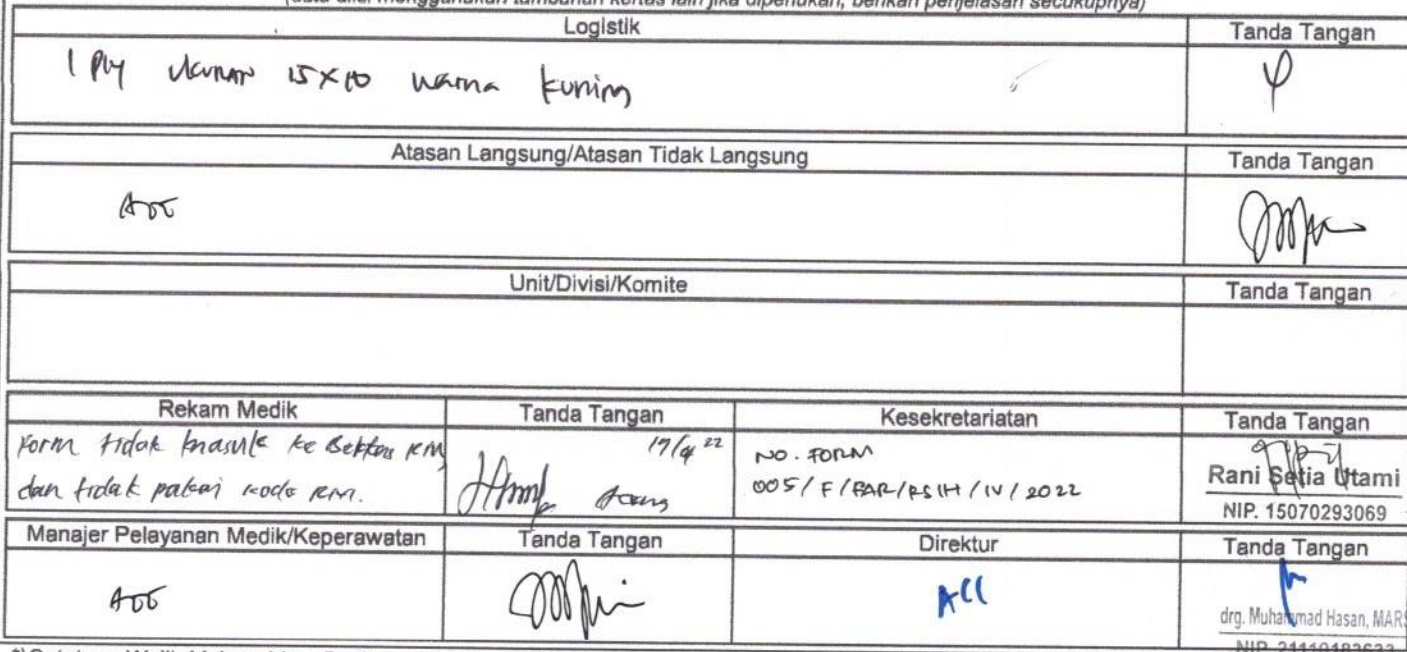 (data diisi menggunakan tambahan kertas lain jika diperlukan, berikan penjelasan secukupnya)
Logistik Tanda Tangan
1 Ply ukuran 15x10 warna kuning
Atasan Langsung/Atasan Tidak Langsung Tanda Tangan
Unit/Divisi/Komite Tanda Tangan
Rekam Medik Tanda Tangan Kesekretariatan Tanda Tangan
Form tidak masuk ke RM 19/4 22 NO. FORM
dan tidak pakai kode RM. 005/F/FAR/RSIH/IV/2022 Rani Setia Utami
NIP. 15070293069
Manajer Pelayanan Medik/Keperawatan Tanda Tangan Direktur Tanda Tangan
ACC
drg. Muhammad Hasan, MARS